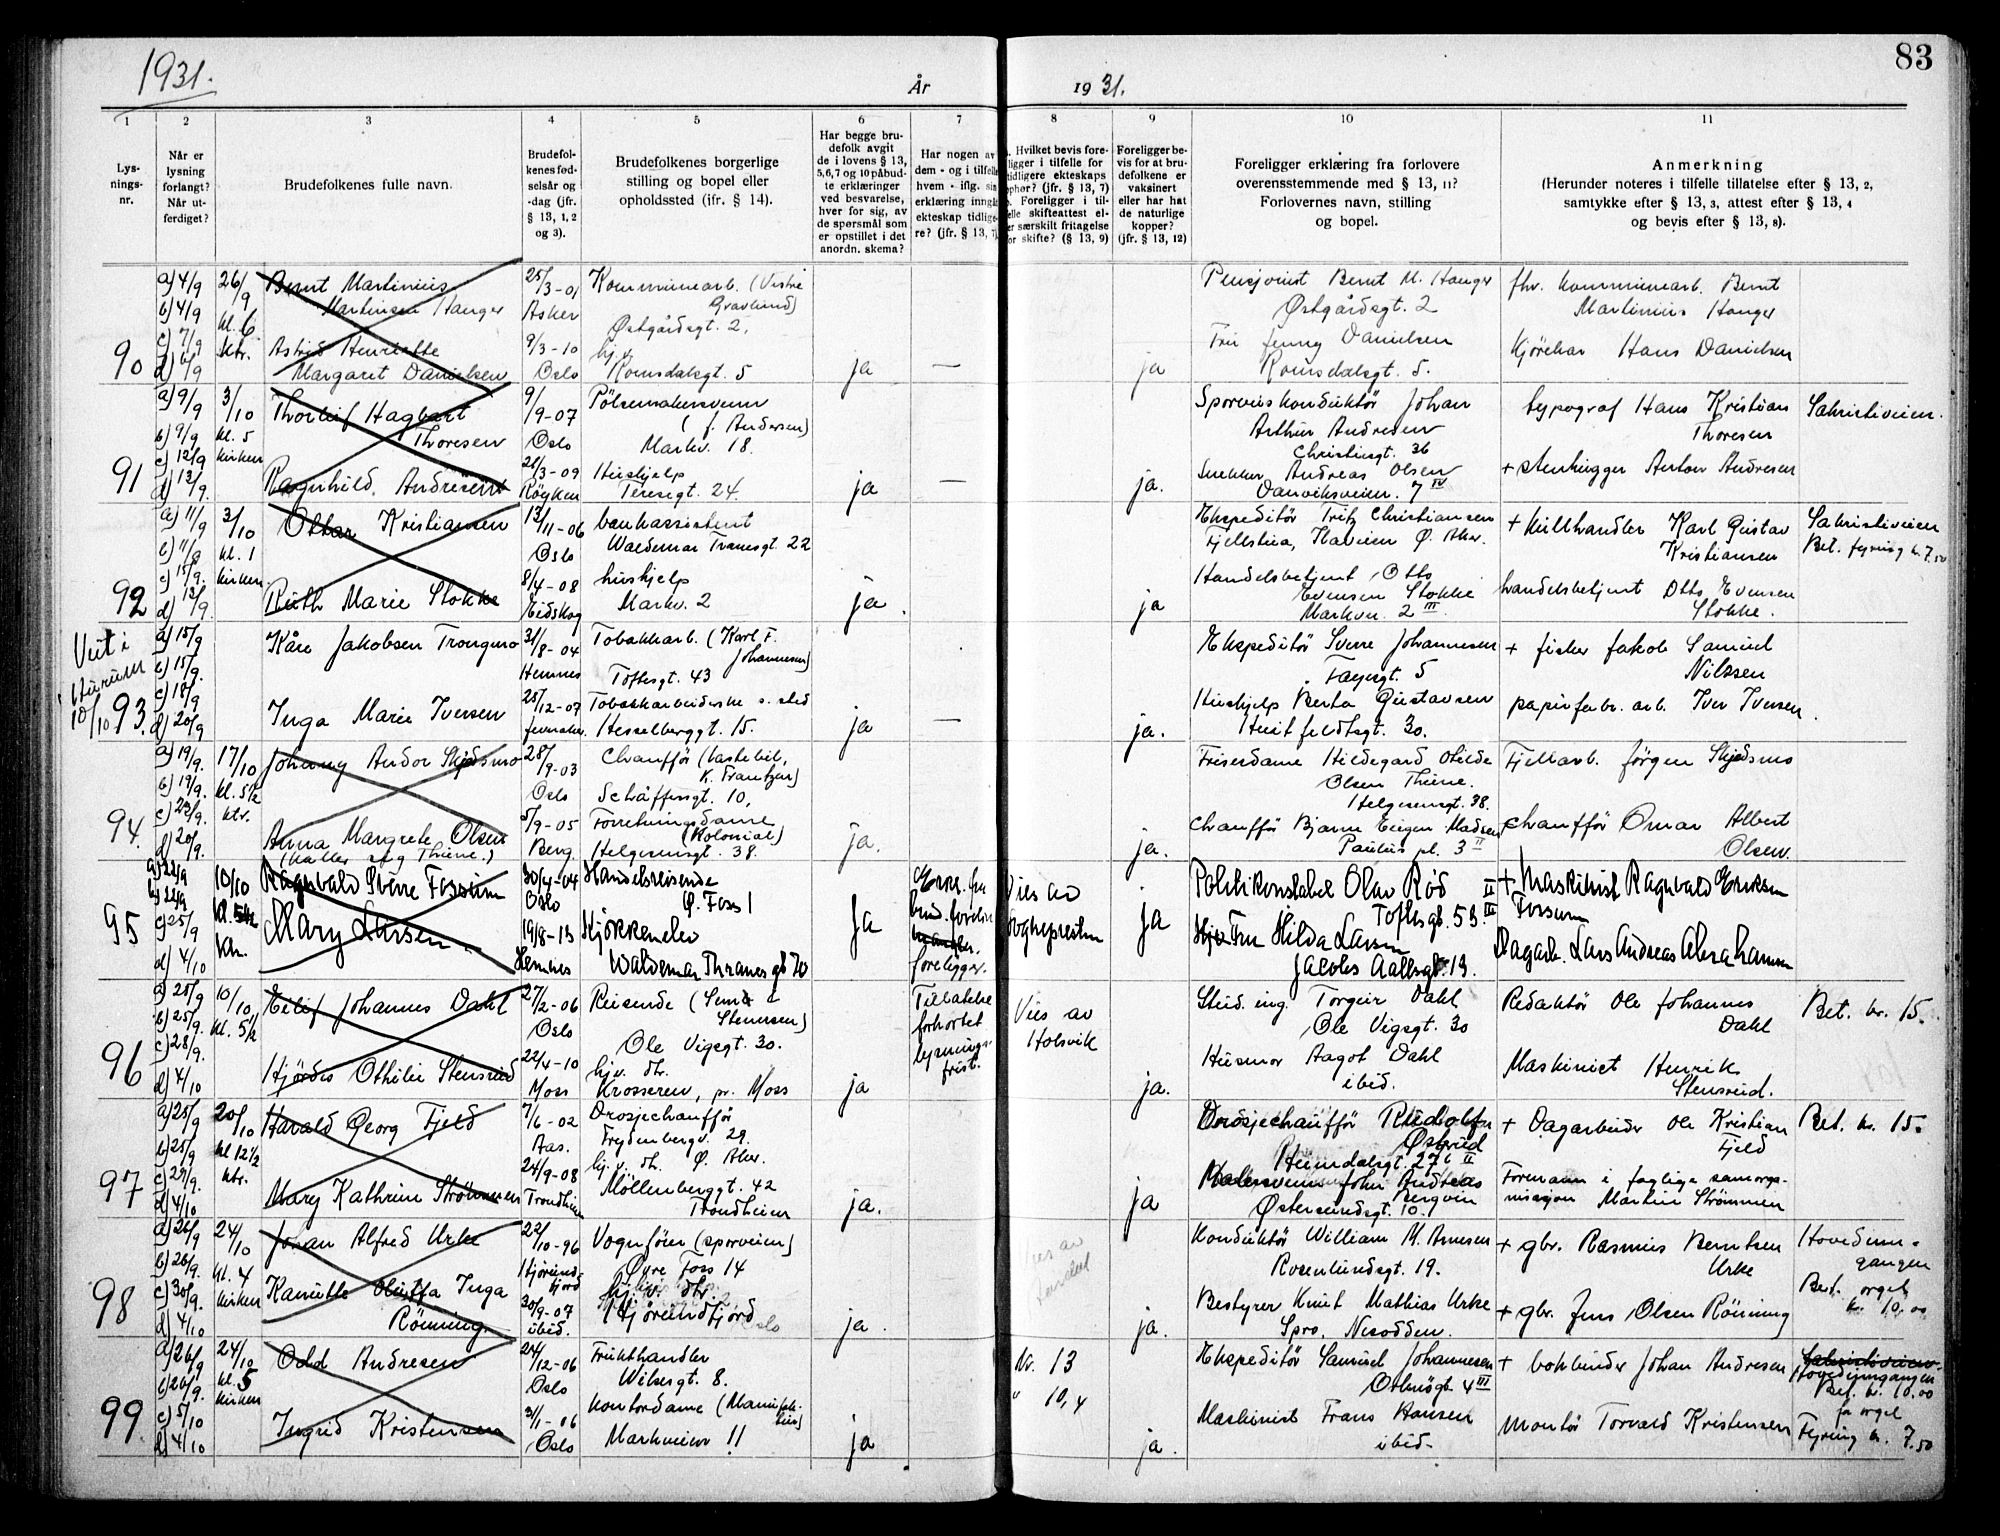 1931.
År
19 31.
83
1
2
3
4
5
6
7
8
9
10
11
Lys-
nings-
nr.
Når er
lysning
forlangt?
Når ut-
ferdiget?
Brudefolkenes fulle navn.
Brudefol-
kenes fød-
selsår og
-dag (jfr.
§ 13, 1, 2
og 3).
Brudefolkenes borgerlige
stilling og bopel eller
opholdssted (ifr. § 14).
Har begge bru-
defolk avgit
de i lovens § 13,
5,6,7 og 10 påbud-
te erklæringer
ved besvarelse,
hver for sig, av
de spørsmål som
er opstillet i det
anordn. skema?
Har nogen av
dem - og i tilfelle
hvem - iflg. sin
erklæring inngått
ekteskap tidlige-
re? (jfr. § 13, 7)
Hvilket bevis fore-
ligger i tilfelle for
tidligere ekteskaps
ophør? (jfr. § 13, 7)
Foreligger i til-
felle skifteattest el-
er særskilt fritagelse
for skifte? (§ 13, 9)
Foreligger be-
vis for at bru-
defolkene er
vaksinert
eller har hat
de naturlige
kopper?
(jfr. § 13, 12)
Foreligger erklæring fra forlovere
overensstemmende med § 13, 11?
Forlovernes navn, stilling
og bopel.
Anmerkning
(Herunder noteres i tilfelle tillatelse efter § 13, 2,
samtykke efter § 13, 3, attest efter § 13, 4
og bevis efter § 13, 8).
90
a) 4/9
b) 4/9
c) 7/9
26/9
kl. 6
ktr.
Bernt Martinius
Martinsen Hanger
Astrid Henriette
Margaret Danielsen
25/3-01
Asker
9/3-10
Oslo
Kommunearb. (Vestre
Gravlund)
Østgårdsgt. 2,
hj.v.
Romsdalsgt. 5
ja
—
ja
Pensjonist Bernt M. Hanger
Østgårdsgt. 2
Fru Jenny Danielsen
Romsdalsgt. 5.
fhv. kommunearb. Bernt
Martinius Hanger
Kjørekar Hans Danielsen
91
a) 9/9
b) 9/9
c) 12/9
d) 13/9.
3/10
kl. 5
kirken
Thorleif Hagbart
Thoresen
Ragnhild Andresen
9/9-07
Oslo
21/3-09
Røyken
Pølsemakersvenn
(f. Andersen)
Markv. 18.
Hushjelp
Teresegt. 24.
ja
—
ja.
Sporveiskonduktør Johan
Arthur Andresen
Christiesgt. 36
Snekker Andreas Olsen
Danviksveien. 7 IV
typograf Hans Kristian
Thoresen
+ stenhugger Anton Andresen
Sakristiveien.
92
a) 11/9
c) 15/9.
d) 13/9.
3/10
kl. 1
kirken
Ottar Kristiansen
Ruth Marie Stokke
13/11-06
Oslo
8/4-08
Eidskog
bankassistent
Waldemar Tranesgt. 22
hushjelp
Markv. 2
ja.
ja
Ekspeditør Fritz Christiansen
Fjellstua, Ø. Aker.
Handelsbetjent, Otto
Evensen Stokke
Markvn. 2 III
+ kullhandler Karl Gustav
Kristiansen
handelsbetjent Otto Evensen
Stokke.
Sakristiveien
Bet. fyring kr. 7.50
Viet i
Hurum
10/10
93.
a) 15/9
b) 15/9.
c) 18/9
d) 20/9
Kåre Jakobsen Trongmo
Inga Marie Iversen
31/8-04
Hemnes
28/12-07
Tobakkarb. (Karl F.
Johannesen)
Toftesgt. 43
Tobakkarbeiderske s. sted
Hesselberggt. 15.
ja
—
ja.
Ekspeditør Sverre Johannesen
Fayesgt. 5
Hushjelp Berta Gustavsen
Huitfeldtsgt. 30.
+ fisker Jakob Samuel
Nilssen
papirfabr. arb. Iver Iversen.
94
a) 19/9.
b) 19/9.
c) 23/9.
d) 20/9.
17/10
kl. 5 1/2
ktr.
Johnny Andor Skjedsmo
Anna Margrete Olsen
(kaller seg Thiene.)
28/9-03
Oslo
5/9-05
Berg.
Chauffør (lastebil,
K. Frantzen)
Schäffersgt. 10,
Forretningsdame
(Kolonial)
Helgesensgt. 38.
ja.
ja.
Frisérdame Hildegard Otilde
Olsen Thiene.
Helgesensgt. 38.
Chauffør Bjarne Eugen Madsen
Paulus pl. 3 II
Fjellarb. Jørgen Skjedsmo
Chauffør Omar Albert
Olsen.
95
a) 22/9
b) 22/9
c) 25/9
d) 4/10
10/10
kl. 5 1/2
Ktr.
Ragnvald Sverre Fossum
Mary Larsen
30/4-04
Oslo
19/8-13
Hemnes
Handelsreisende
Ø. Foss 1
Kjøkkenelev
Waldemar Thranes gt 70
Ja
Erkl. fra
brud. foreldre
foreligger.
Vies av
sogneprestn
ja
Politikonstabel Olav Rød II
Toftes gt. 53 III
Fru Hilda Larsen
Jacobs Aallsgt. 13.
+ Maskinist Ragnvald Eriksen
Fossum
Dagarb. Lars Andreas Abrahamsen
96
a) 25/9
b) 25/9.
c) 28/9.
d) 4/10
10/10
kl. 5 1/2
Eilif Johannes Dahl
Hjørdis Othilie Stensrud
27/2-06
Oslo
22/4-10
Moss
Reisende (Sund &
Stenersen)
Ole Vigsgt. 30.
hjv. dtr.
Krosseren, pr. Moss
ja
Tillatelse
forkortet
lysnings-
frist.
Vies av
Holsvik
ja.
Stud. ing. Torgeir Dahl
Ole Vigsgt. 30
Husmor Aagot Dahl
ibid.
Redaktør Ole Johannes
Dahl
Maskinist Henrik
Stensrud.
Bet. kr. 15.
97
a) 25/9
b) 25/9
c) 29/9.
d) 4/10
20/10
kl 12 1/2
ktr.
Harald Georg Fjeld
Mary Kathrine Strømmen
7/6-02
Aas.
24/9-08
Trondheim
Drosjechauffør
Frydenbergv. 29.
hj. v. dtr. Ø. Aker.
Møllenberggt. 42
Trondheim
ja.
ja
Drosjechauffør Rudolf
Østerud
Heimdalsgt. 27 II
John Andreas
Østersundsgt. 10.
+ Dagarbeider Ole Kristian
Fjeld
Formann i faglige samorga-
nisasjon Martin Strømmen
Bet. kr. 15.
98
a) 26/9
b) 26/9.
c) 30/9.
d) 4/10
24/10
kl. 4
kirken
Johan Alfred Urke
Kamille Oluffa Inga
Rønning
22/10-96
Hjørund-
fjord
30/9-07
ibid.
Vognfører (sporveien)
Øvre Foss 14
hj. v. dtr.
Hjørundfjord
ja
ja.
Konduktør William M. Arnesen
Rosenlundsgt. 19.
Bestyrer Knut Mathias Urke
Spro. Nesodden.
+ gbr. Rasmus Berntsen
Urke
+ gbr. Jens Olsen Rønning
Hovedinn-
gangen
Bet. orgel
kr. 10,00
99
a) 26/9
b) 26/9.
c) 5/10
d) 4/10
24/10
kl. 5
kirken
Odd Andresen
Ingrid Kristensen
24/12-06
Oslo
31/1-06
Oslo
Frukthandler
Wilsesgt. 8.
Kontordame
Markveien 11
ja
Nr. 13
" 10,4
ja.
Ekspeditør Samuel Johannesen
4 III
Maskinist Frans Hansen
ibid.
+ bokbinder Johan Andresen
Montør Torvald Kristensen
Sakristiveien
Hovedinngangen
Bet. kr. 10.00
for orgel
Fyring kr. 7.50